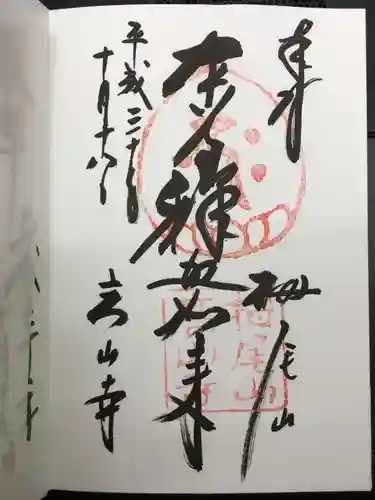 奉拝
栂尾山
本尊釋迦如来
平成三十年
十月十八日
高山寺
栂尾山
高山寺